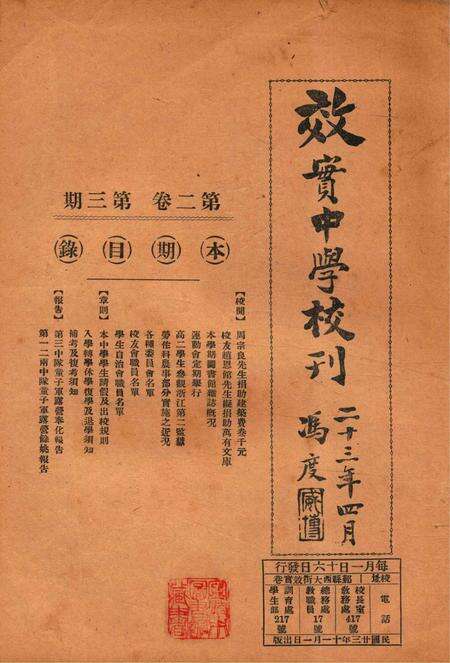 效實中學校刊
二十三年四月
馮度
第二卷 第三期
本期目錄
【校聞】周宗良先生捐助建築費叁千元
校友趙恩舘先生擬捐助萬有文庫
本學期圖書館雜誌概況
運動會定期舉行
高二學生參觀浙江第二監獄
勞作科農事部分實施之近況
各種委員會名單
校友會職員名單
學生自治會職員名單
【章則】本中學學生請假及出校規則
入學轉學休學復學及退學須知
補考及複考須知
【報告】第三中隊童子軍露營奉化報告
第一二兩中隊童子軍露營餘姚報告
每月一日十六日發行
校址 鄞縣西大街效實巷
電話
校長室
教務處
417號
總務處
教職員
17號
訓育處
學生部
217號
民國廿三年十一月一日出版